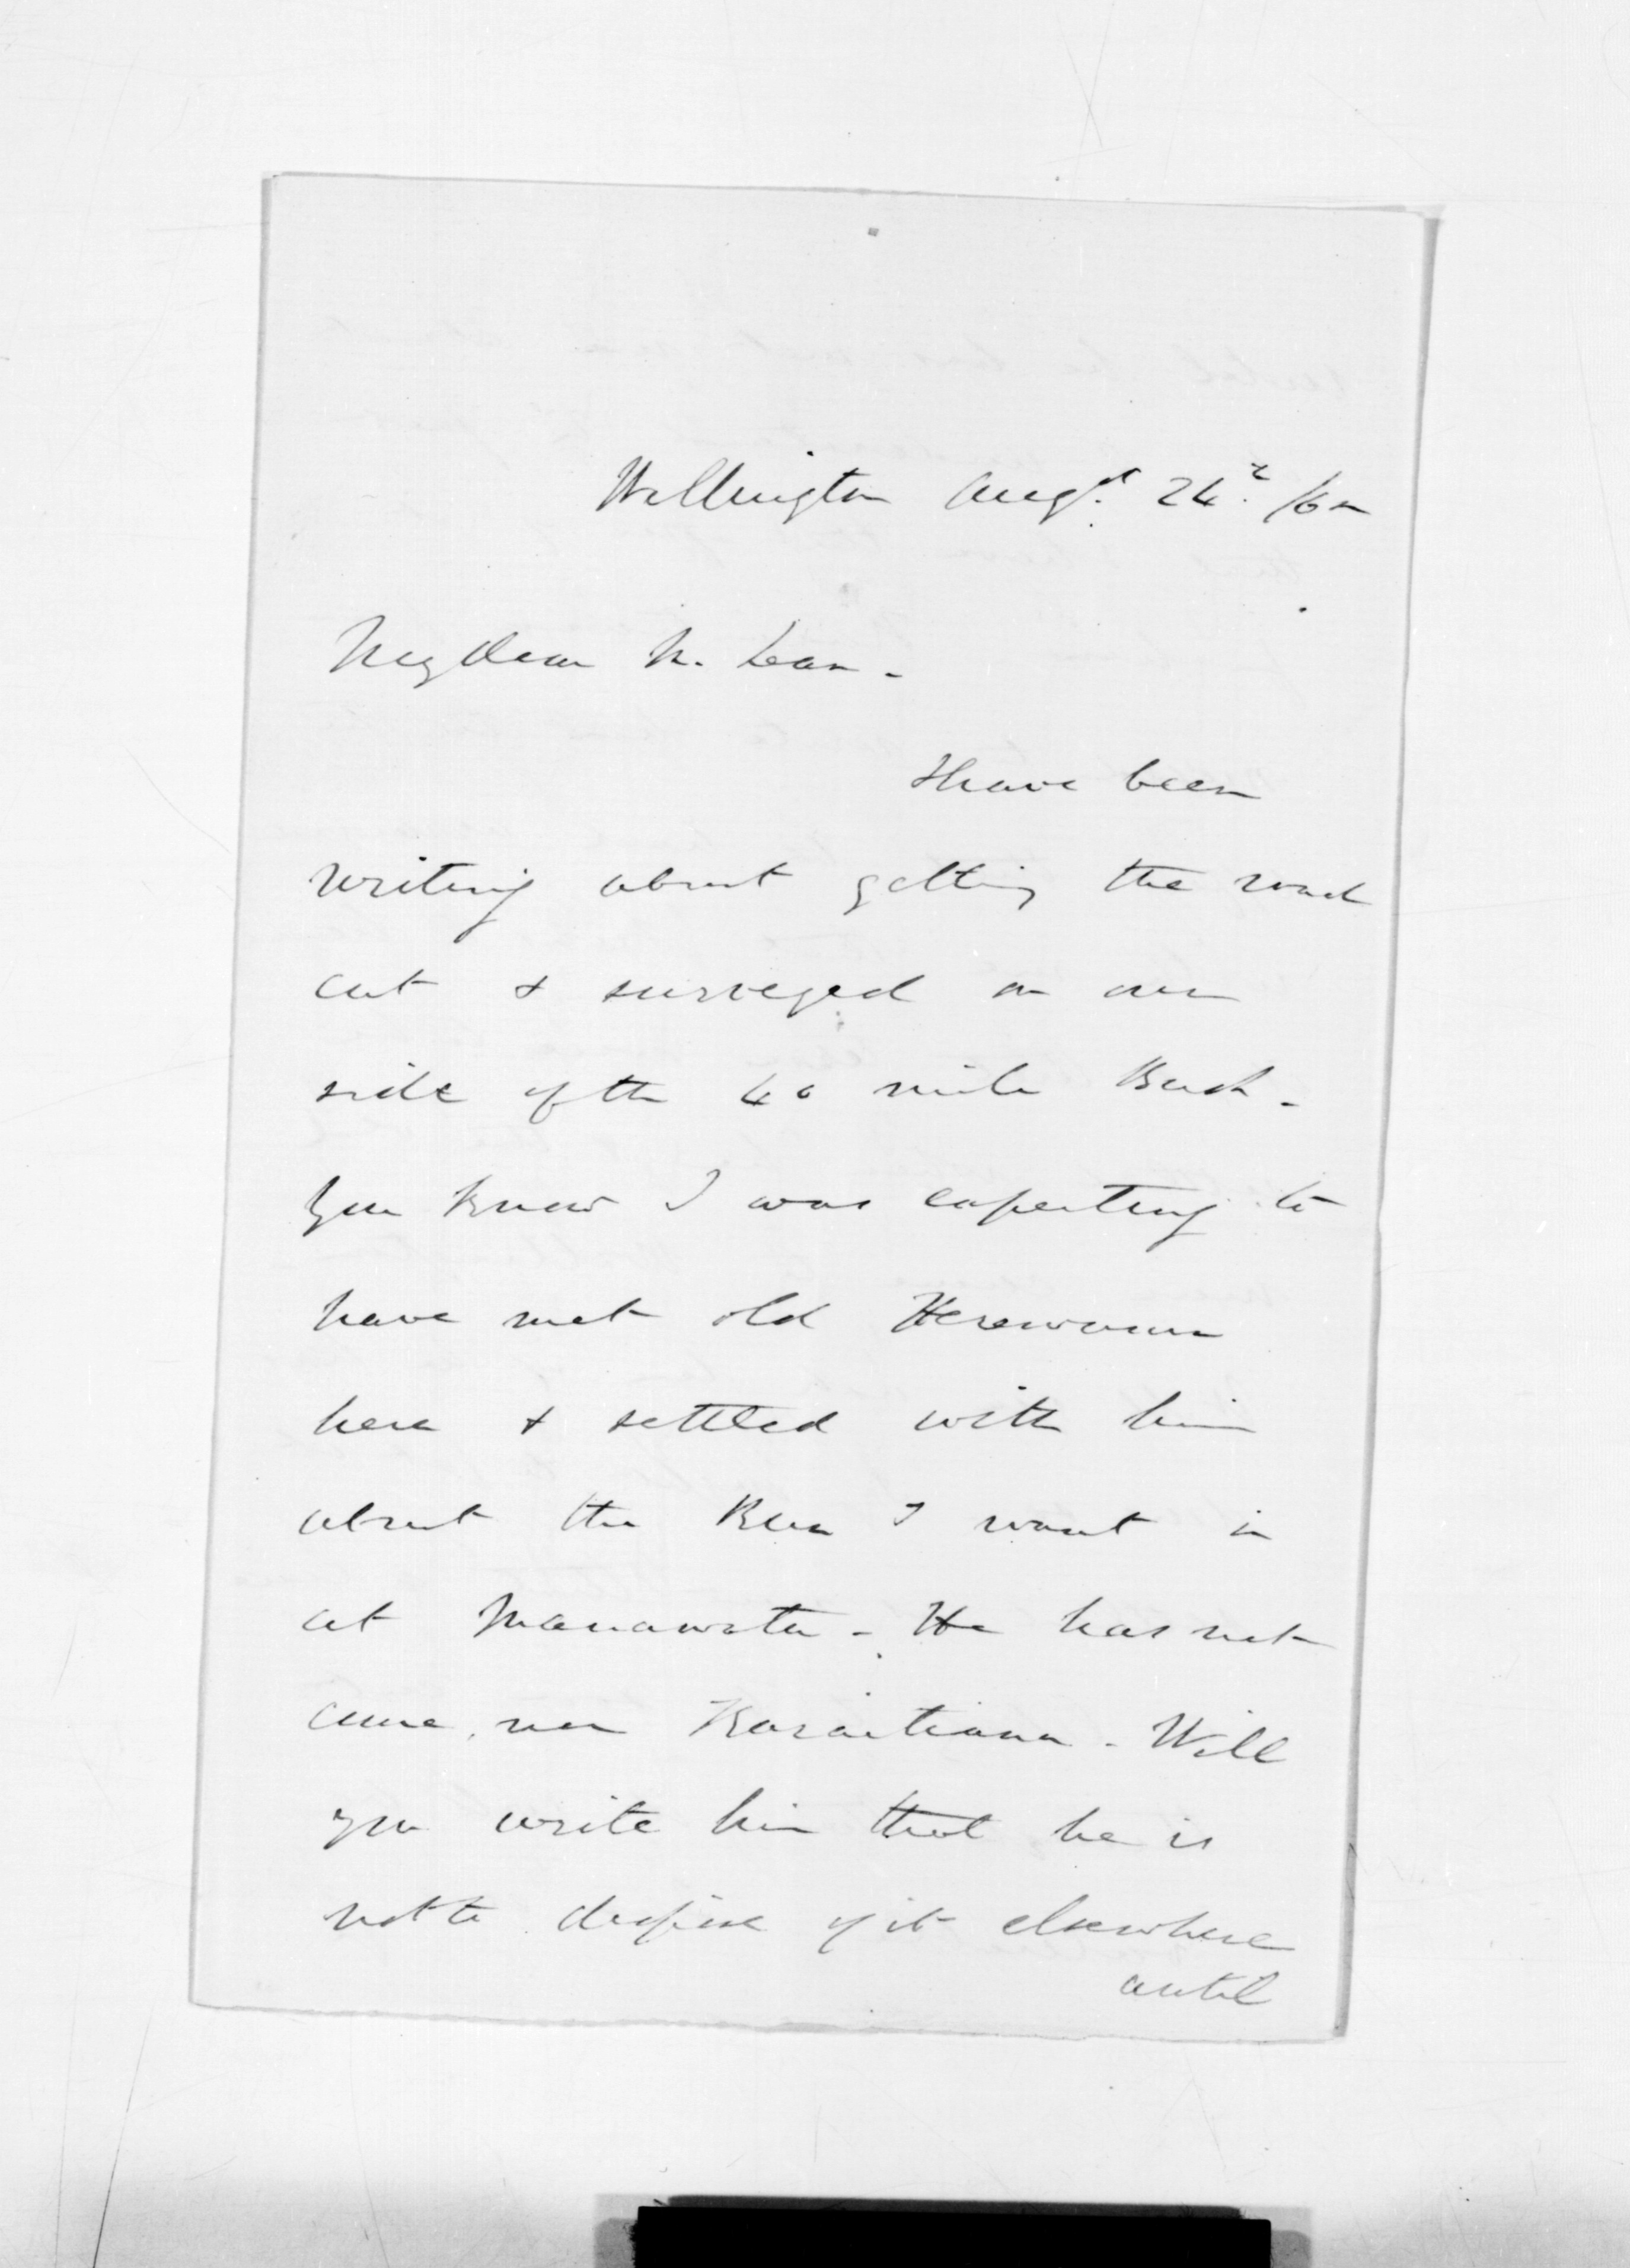 Wellington Augt. 24th /60
My dear McLean.
I have been
writing about getting the road
cut & surveyed on our
side of the 40 mile Bush.
You know I was expecting to
have met old Hirawanu
here & settled with him
about the Run I want in
at Manawatu. He has not
come, nor Karaitiana. Will
you write him that he is
not to dispose of it elsewhere
until